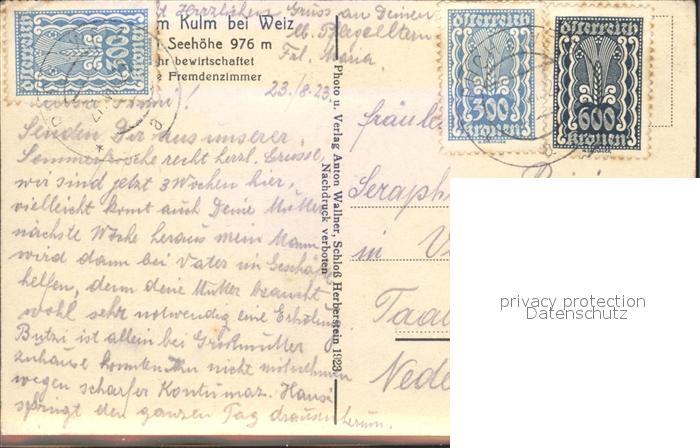 Herzlichen Gruss an Deinen
lb. Pflegeltern
Frl. Maria
m Kulm bei Weiz
Seehöhe 976 m
hr bewirtschaftet
e Fremdenzimmer
23./8.23.
Senden Dir aus unserer
Sommerfrische recht herzl. Grüsse,
wir sind jetzt 3 Wochen hier,
vielleicht komt auch Deine Mutter
nächste Woche heraus mein Mann
wird dann bei Vater im Geschäft
helfen, denn deine Mutter braucht
wohl sehr notwendig eine Erholung
Butzi ist allein bei Grossmutter
zuhause konnten ihn nicht mitnehmen
wegen scharfer Kontumaz. Hansi
springt den ganzen Tag draussen herum.
Photo u. Verlag Anton Wallner, Schloß Herberstein 1923.
Nachdruck verboten
österreich
300
kronen
österreich
300
kronen
österreich
600
kronen
Fräulein
Seraph
in
Taa
Nede
privacy protection
Datenschutz